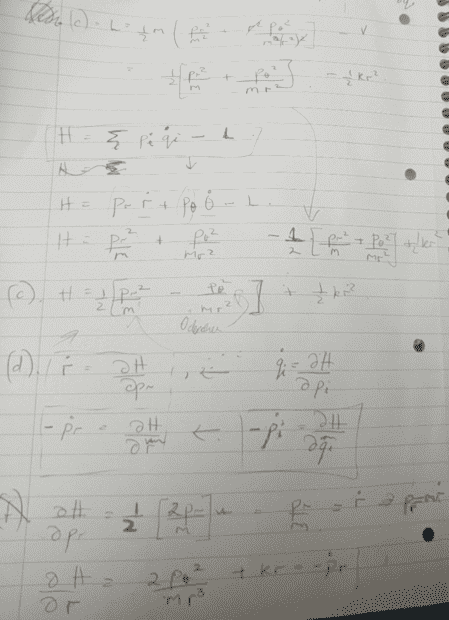 (c). L = ½ m ( pr²/m² + r² pθ²/m²r⁴ ) - V
= ½ [ pr²/m + pθ²/mr² ] - ½ kr²
H = Σ pi q̇i - L
H = Σ
H = pr ṙ + pθ θ̇ - L.
H = pr²/m + pθ²/mr² - ½ [ pr²/m + pθ²/mr² ] + ½ kr²
(c). H = ½ [ pr²/m - pθ²/mr² ] + ½ kr²
(d). ṙ = ∂H/∂pr , ← q̇i = ∂H/∂pi
-ṗr = ∂H/∂r ← -ṗi = ∂H/∂qi
∂H/∂pr = ½ [ 2pr/m ] = pr/m = ṙ → pr = mṙ
∂H/∂r = 2pθ²/mr³ + kr = -ṗr